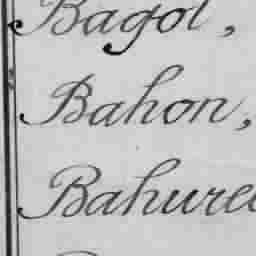 Bagot,
Bahon,
Bahure